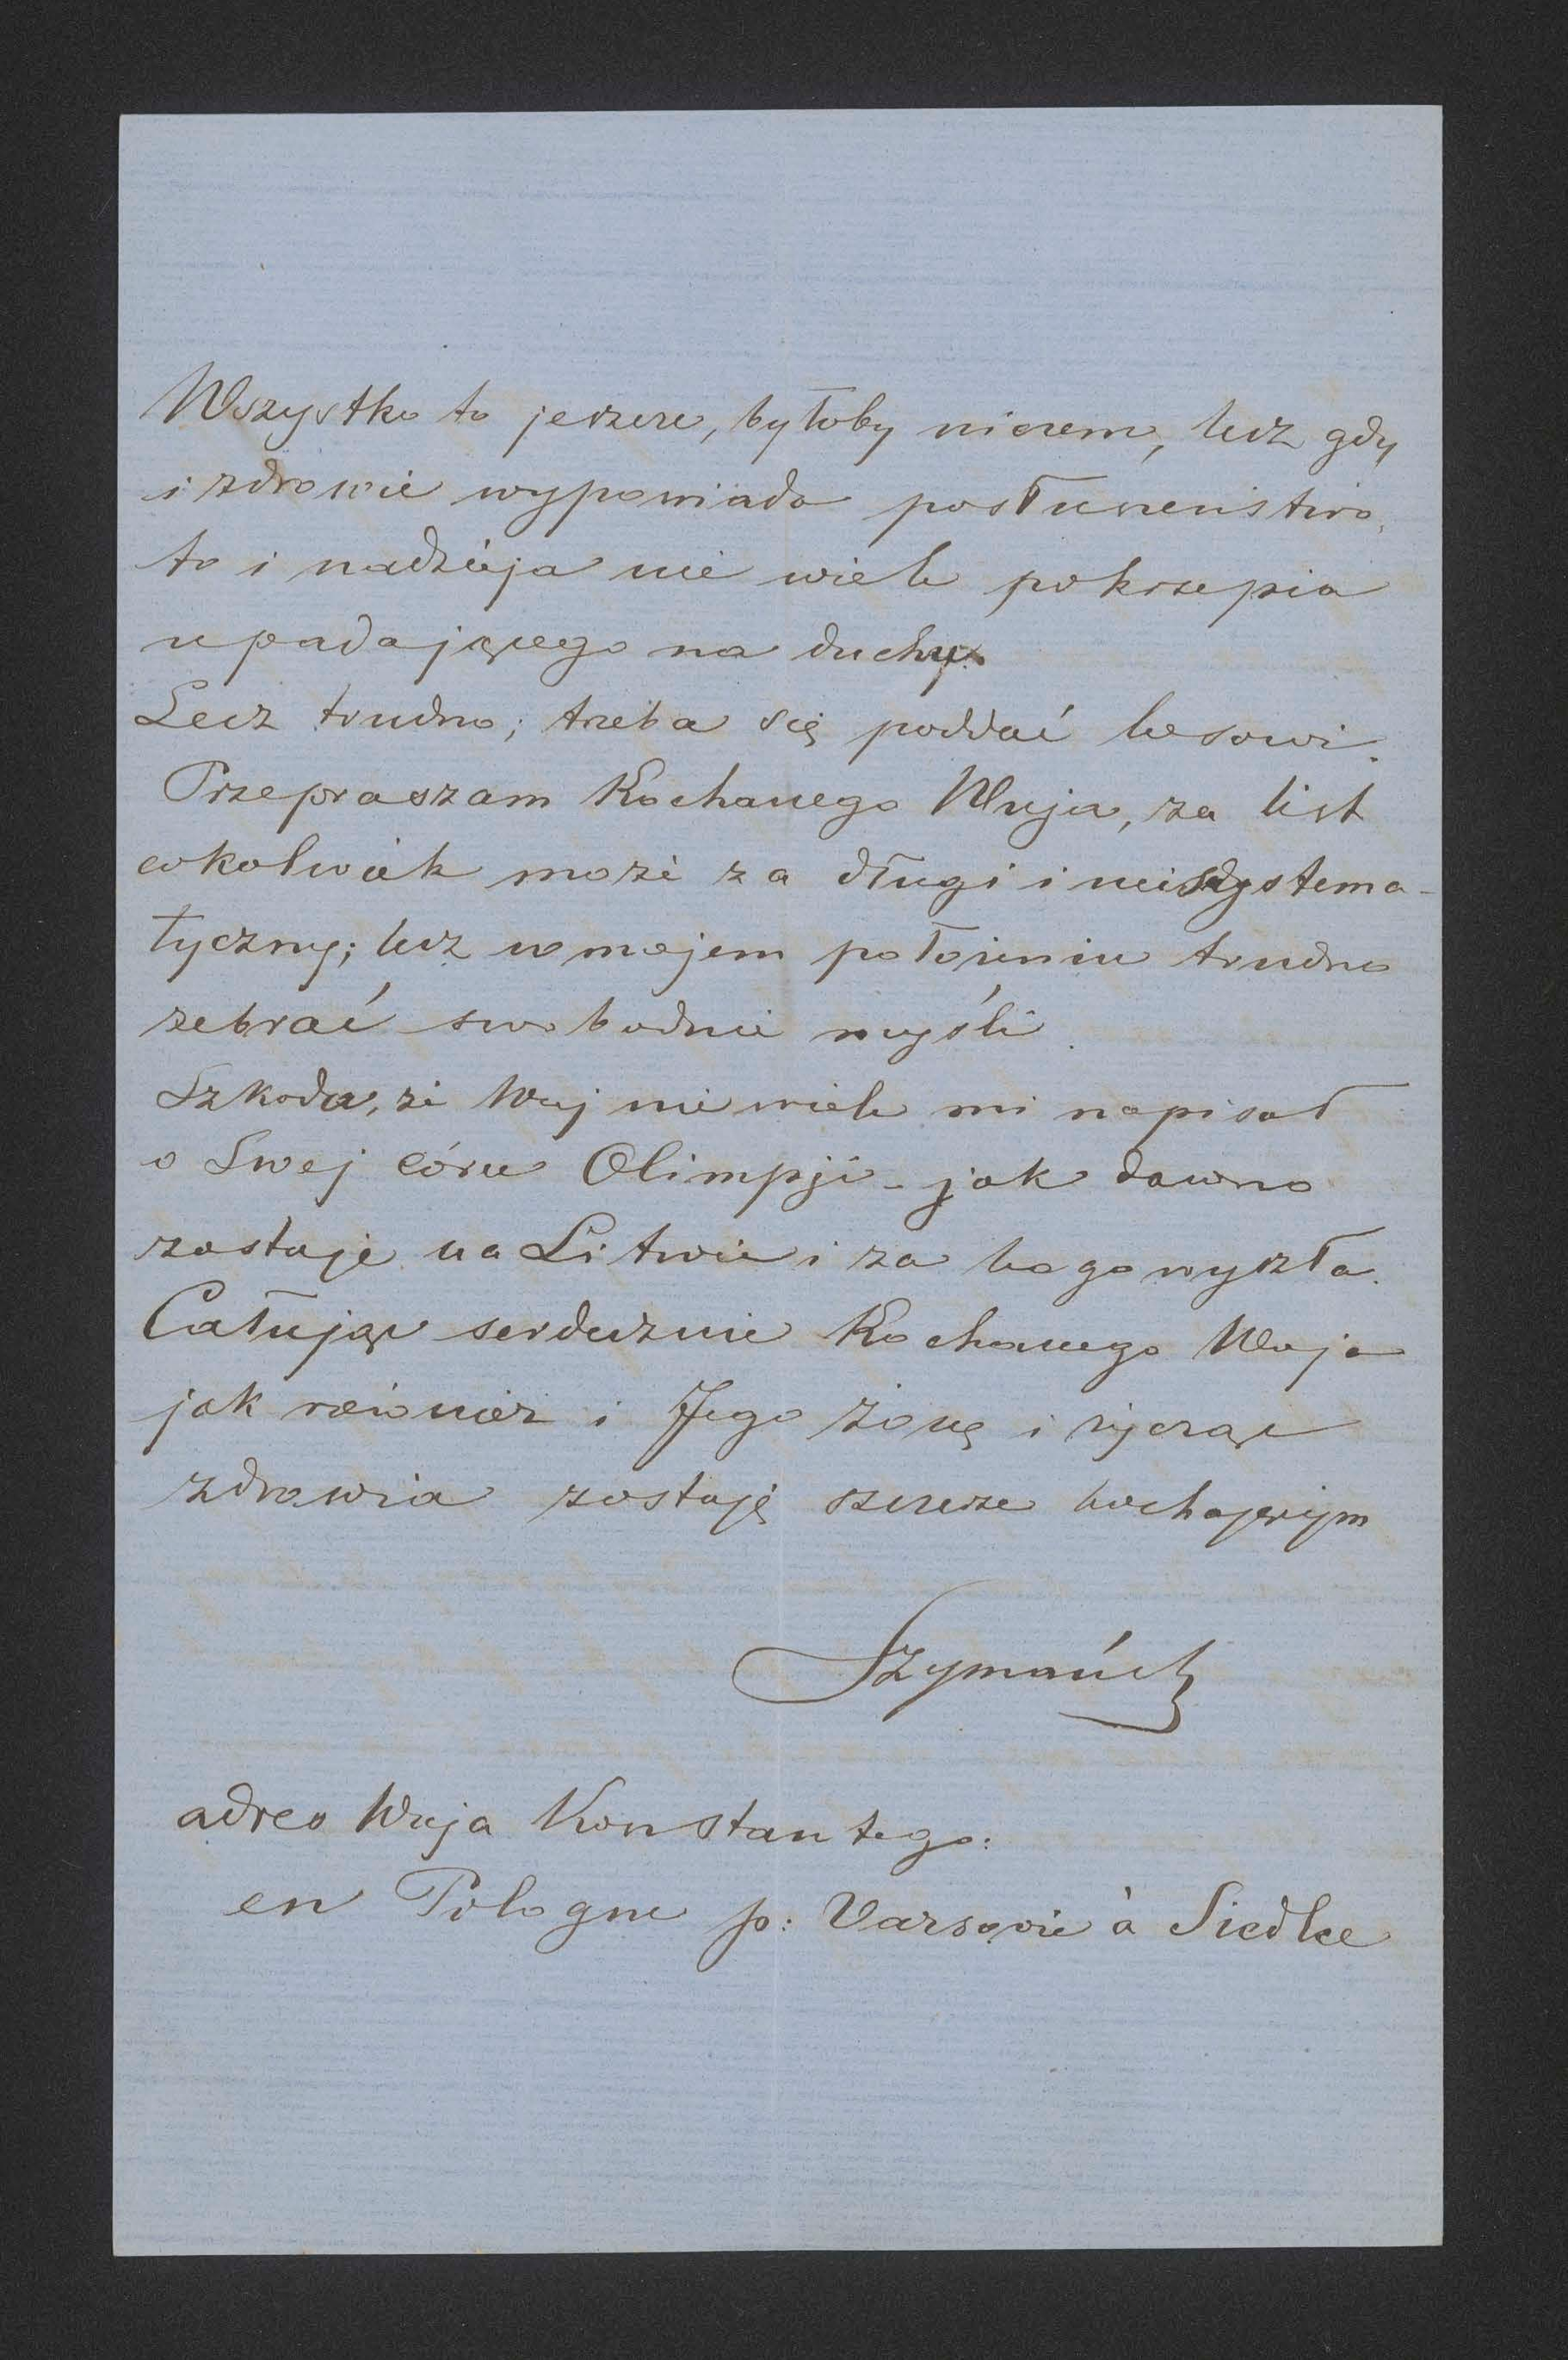 Wszystko to jeszcze, byłoby niczem, lecz gdy
i zdrowie wypowiada posłuszeństwo,
to i nadzieja nie wiele pokrzepia
upadającego na duchu.
Lecz trudno; trzeba się poddać losowi.
Przepraszam Kochanego Wuja, za list
cokolwiek może za długi i niesystema-
tyczny; lecz w mojem położeniu trudno
zebrać swobodnie myśli.
Szkoda, że Wuj nie wiele mi napisał
o Swej córce Olimpji - jak dawno
zostaje na Litwie i za kogo wyszła.
Całując serdecznie Kochanego Wuja
jak również i Jego żonę i życząc
zdrowia zostaję szczerze kochającym
adres Wuja Konstantego:
en Pologne p: Varsovie à Siedlce